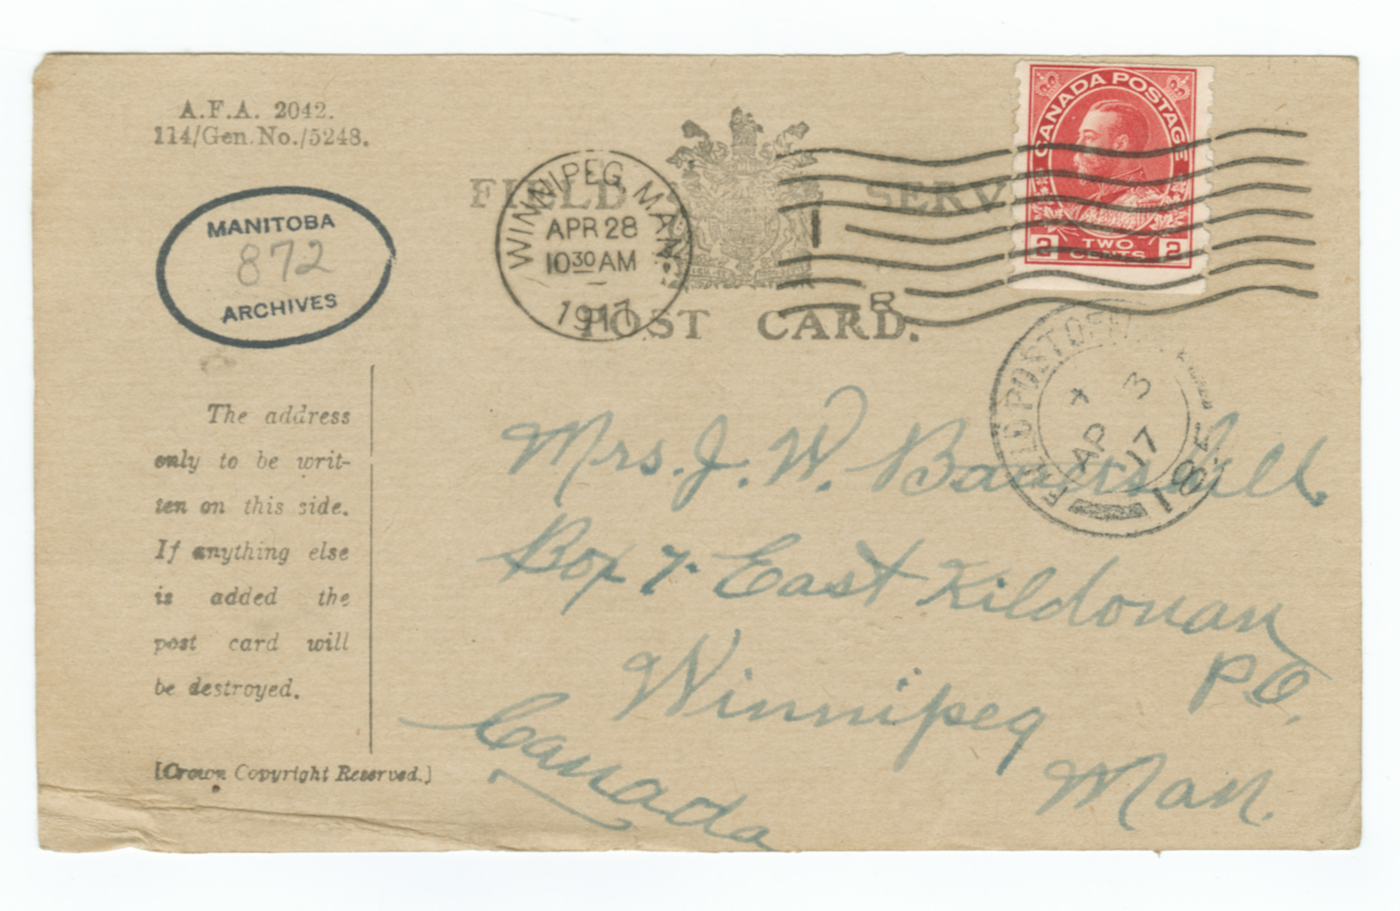 A.F.A. 2042.
114/Gen.No./5248.
MANITOBA
872
ARCHIVES
FIELD SERV
WINNIPEG MAN.
APR 28
10 30 AM
1917
1
CANADA POSTAGE
2 TWO CENTS 2
R
POST CARD.
FIELD POST OFF
AP 3
17
The address
only to be writ-
ten on this side.
If anything else
is added the
post card will
be destroyed.
[Crown Copyright Reserved.]
Mrs. J. W.
Box 7. East Kildonan
P.O.
Winnipeg
Man.
Canada